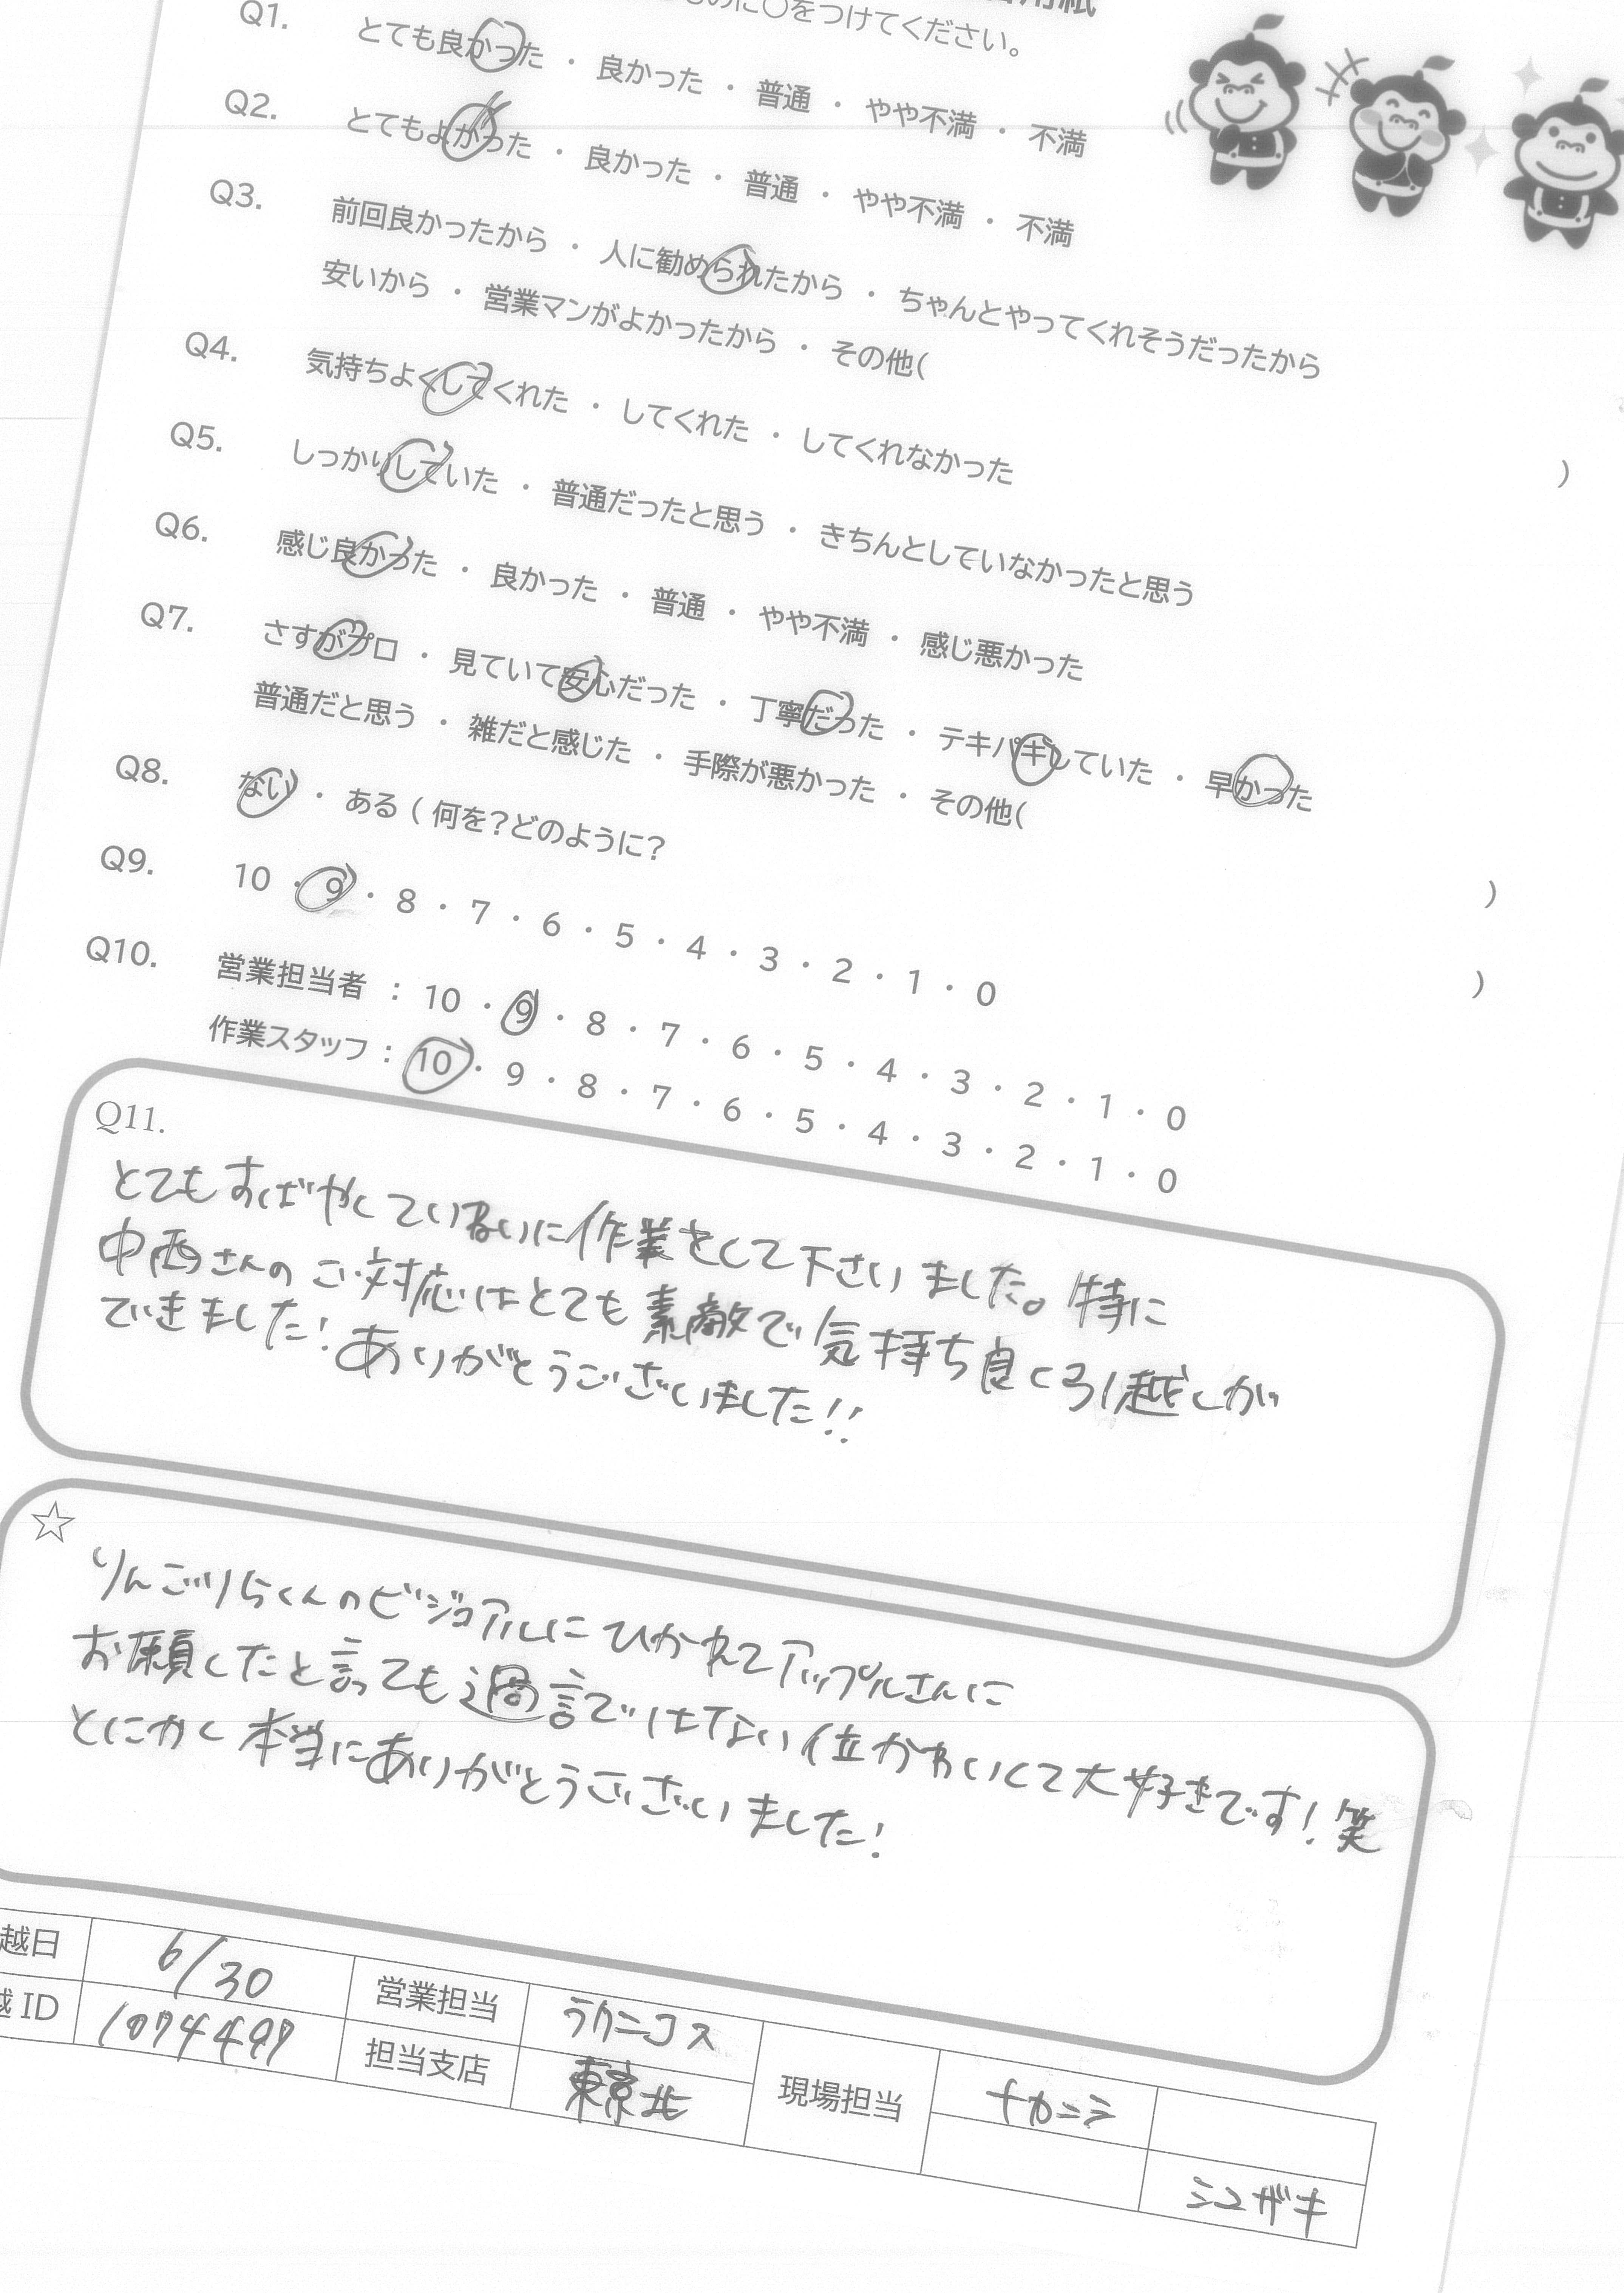 用紙
のに○をつけてください。
Q1. とても良かった ・ 良かった ・ 普通 ・ やや不満 ・ 不満
Q2. とてもよかった ・ 良かった ・ 普通 ・ やや不満 ・ 不満
Q3. 前回良かったから ・ 人に勧められたから ・ ちゃんとやってくれそうだったから
安いから ・ 営業マンがよかったから ・ その他( )
Q4. 気持ちよくしてくれた ・ してくれた ・ してくれなかった
Q5. しっかりしていた ・ 普通だったと思う ・ きちんとしていなかったと思う
Q6. 感じ良かった ・ 良かった ・ 普通 ・ やや不満 ・ 感じ悪かった
Q7. さすがプロ ・ 見ていて安心だった ・ 丁寧だった ・ テキパキしていた ・ 早かった
普通だと思う ・ 雑だと感じた ・ 手際が悪かった ・ その他( )
Q8. ない ・ ある ( 何を?どのように? )
Q9. 10 ・ 9 ・ 8 ・ 7 ・ 6 ・ 5 ・ 4 ・ 3 ・ 2 ・ 1 ・ 0
Q10. 営業担当者 : 10 ・ 9 ・ 8 ・ 7 ・ 6 ・ 5 ・ 4 ・ 3 ・ 2 ・ 1 ・ 0
作業スタッフ : 10 ・ 9 ・ 8 ・ 7 ・ 6 ・ 5 ・ 4 ・ 3 ・ 2 ・ 1 ・ 0
Q11.
とてもすばやくていねいに作業をして下さいました。特に
中西さんのご対応はとても素敵で気持ち良く引越しが
できました!ありがとうございました!!
☆
りんごりらくんのビジュアルにひかれてアップルさんに
お願いしたと言っても過言ではない位かわいくて大好きです!笑
とにかく本当にありがとうございました!
越日 6/30 営業担当 ラクニコス 現場担当 ナカニシ
越ID 1074497 担当支店 東京北
シマザキ